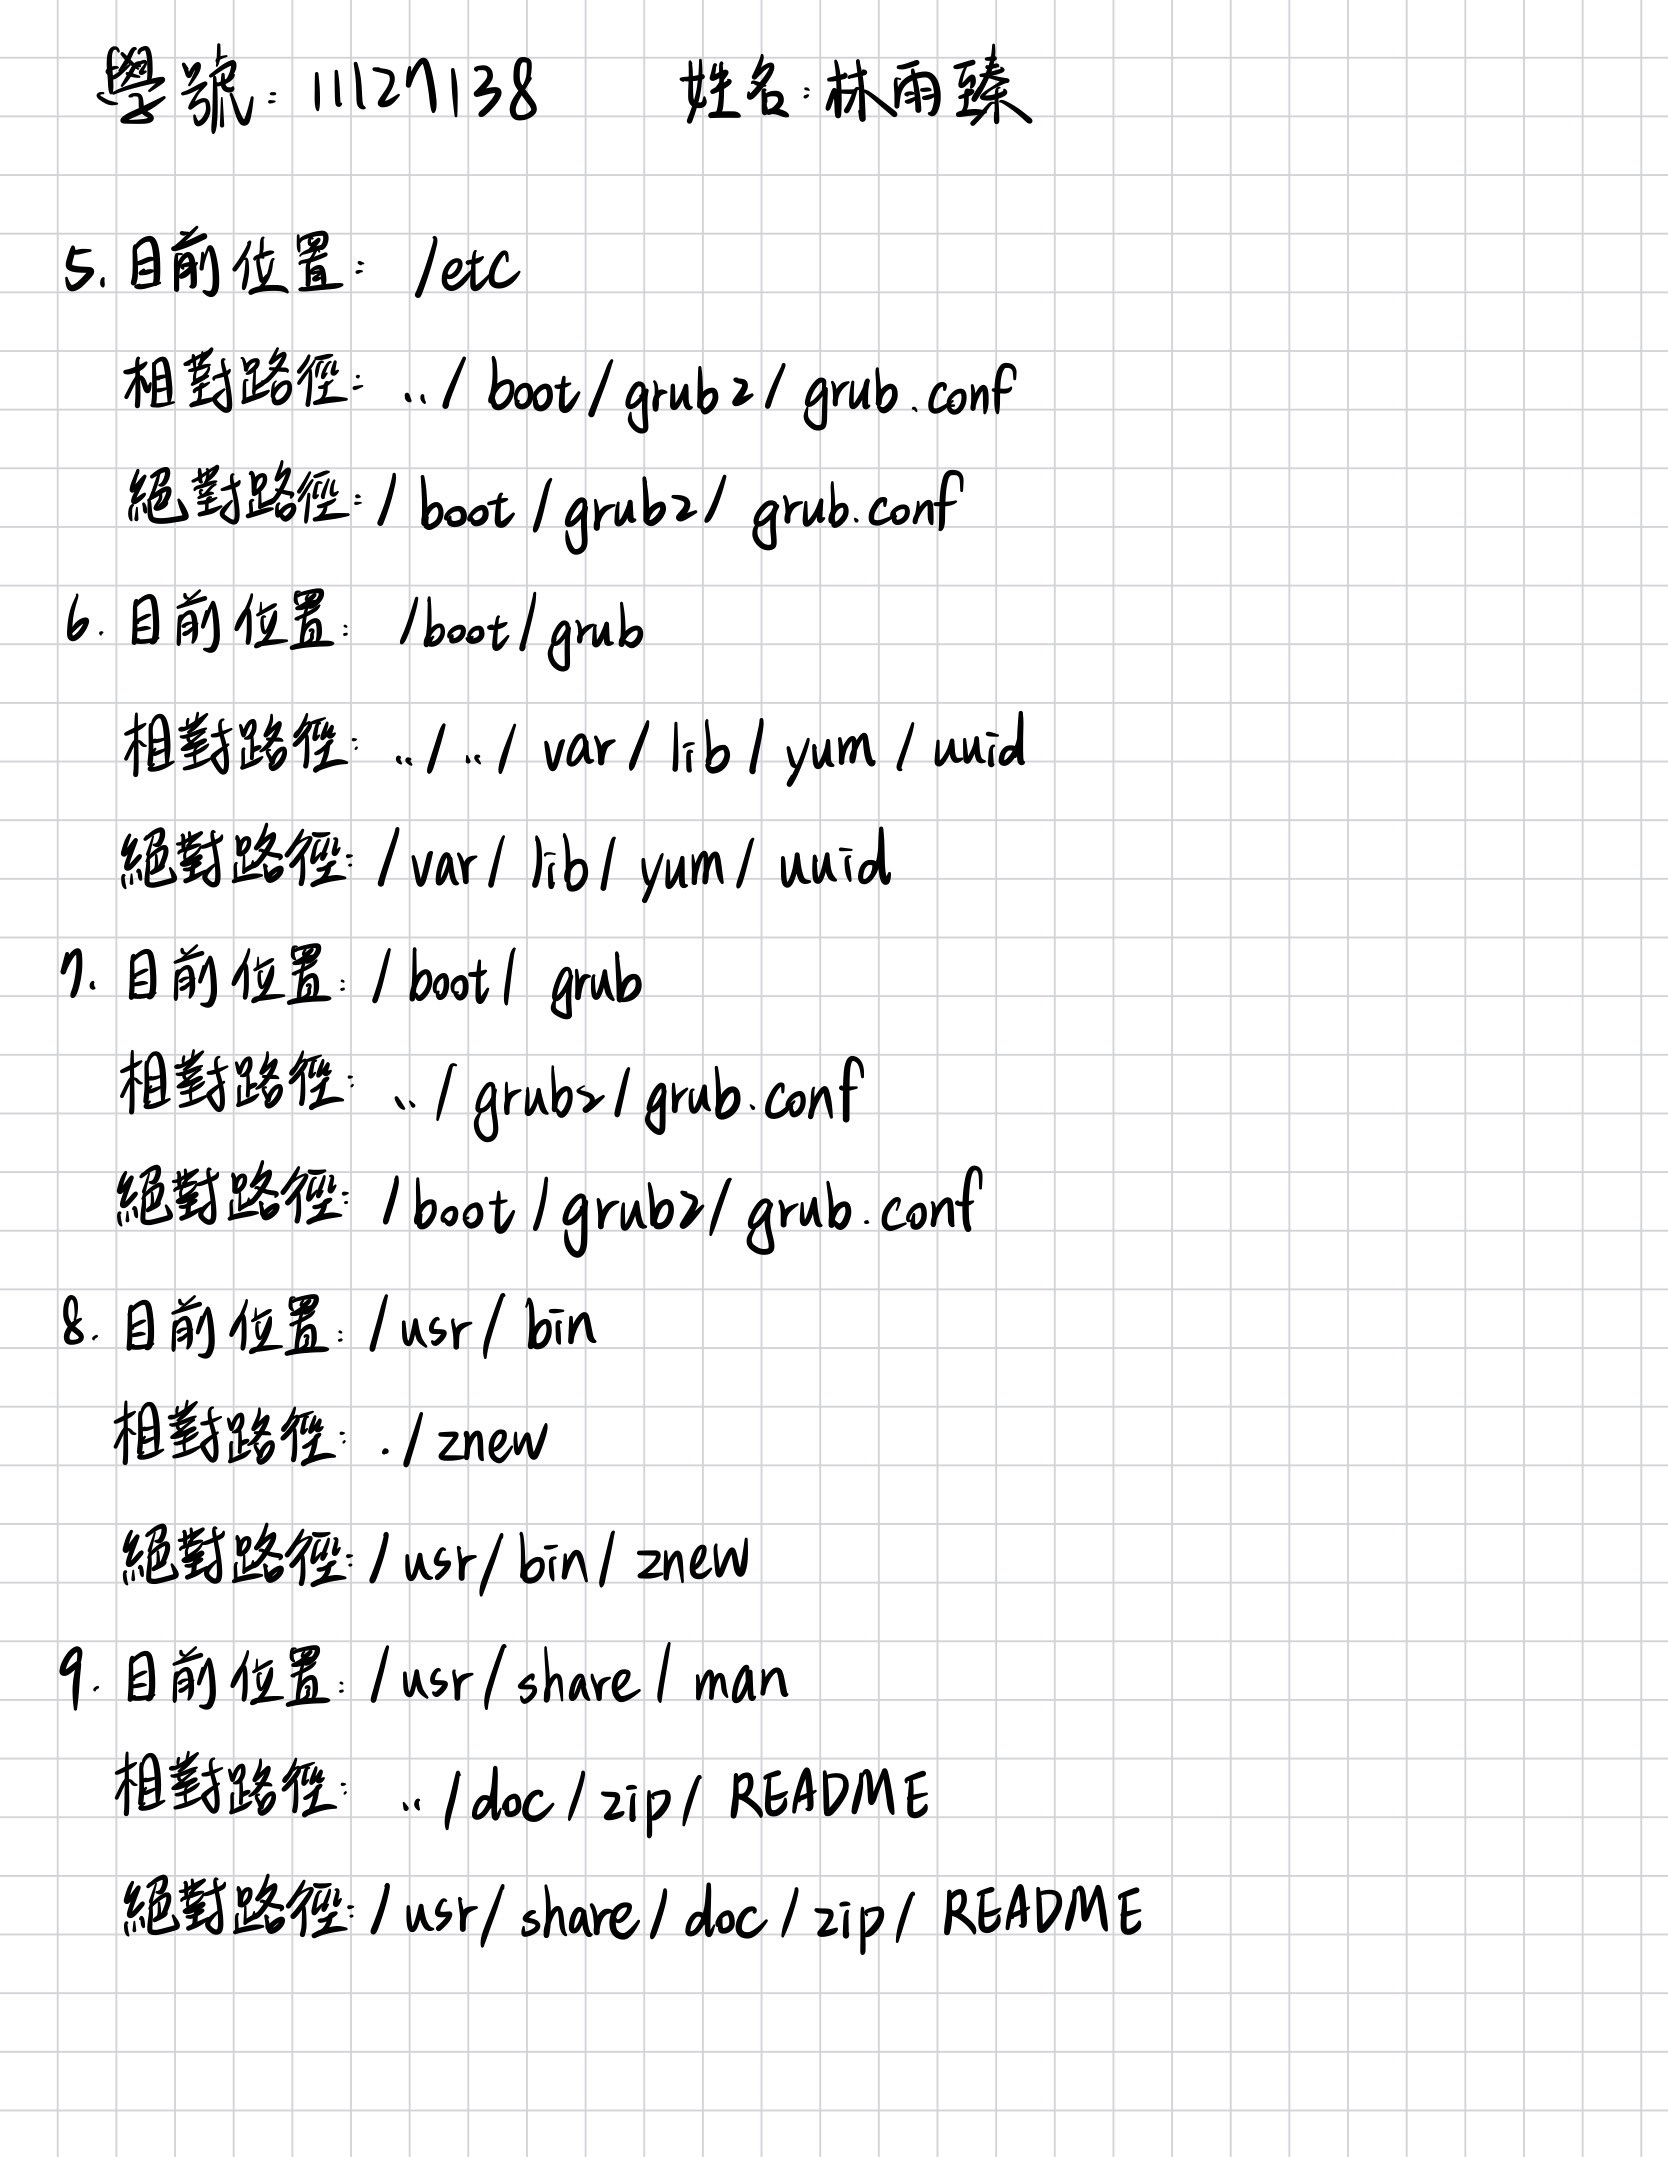 學號：11127138 姓名：林雨臻
5. 目前位置： /etc
相對路徑： ../boot/grub2/grub.conf
絕對路徑：/boot/grub2/grub.conf
6. 目前位置： /boot/grub
相對路徑： ../../var/lib/yum/uuid
絕對路徑：/var/lib/yum/uuid
7. 目前位置：/boot/grub
相對路徑： ../grub2/grub.conf
絕對路徑： /boot/grub2/grub.conf
8. 目前位置：/usr/bin
相對路徑： ./znew
絕對路徑：/usr/bin/znew
9. 目前位置：/usr/share/man
相對路徑： ../doc/zip/README
絕對路徑：/usr/share/doc/zip/README